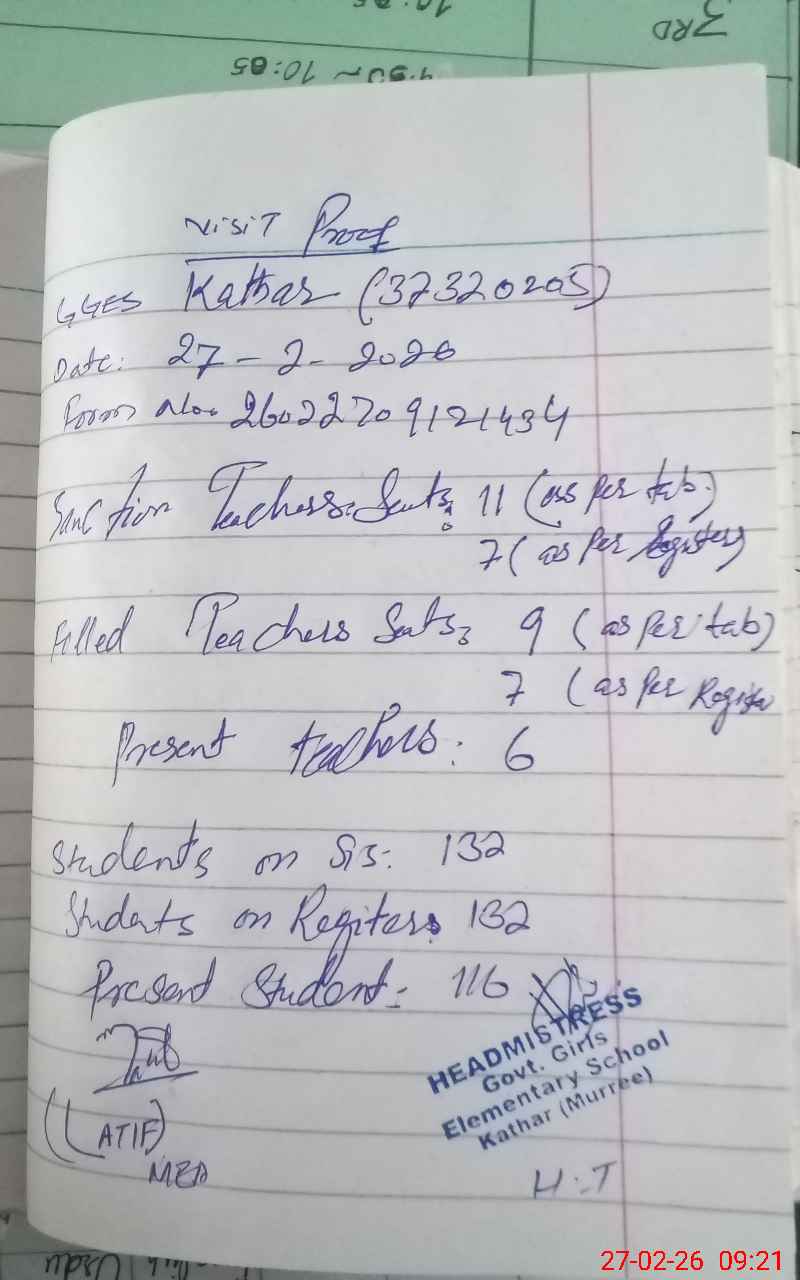 3RD
10:05
9:30 ~ 10:05
Visit Proof
GGES Kathar (37320205)
Date: 27-2-2026
Form No. 26022709121434
Sanction Teachers Seats: 11 (as per tab)
7 (as per Registers)
Filled Teachers Seats: 9 (as per tab)
7 (as per Register
Present teachers: 6
Students on SIS: 132
Students on Regiters: 132
Present Student: 116
HEADMISTRESS
Govt. Girls
Elementary School
Kathar (Murree)
(LATIF)
MEA
H:T
Urdu
27-02-26 09:21